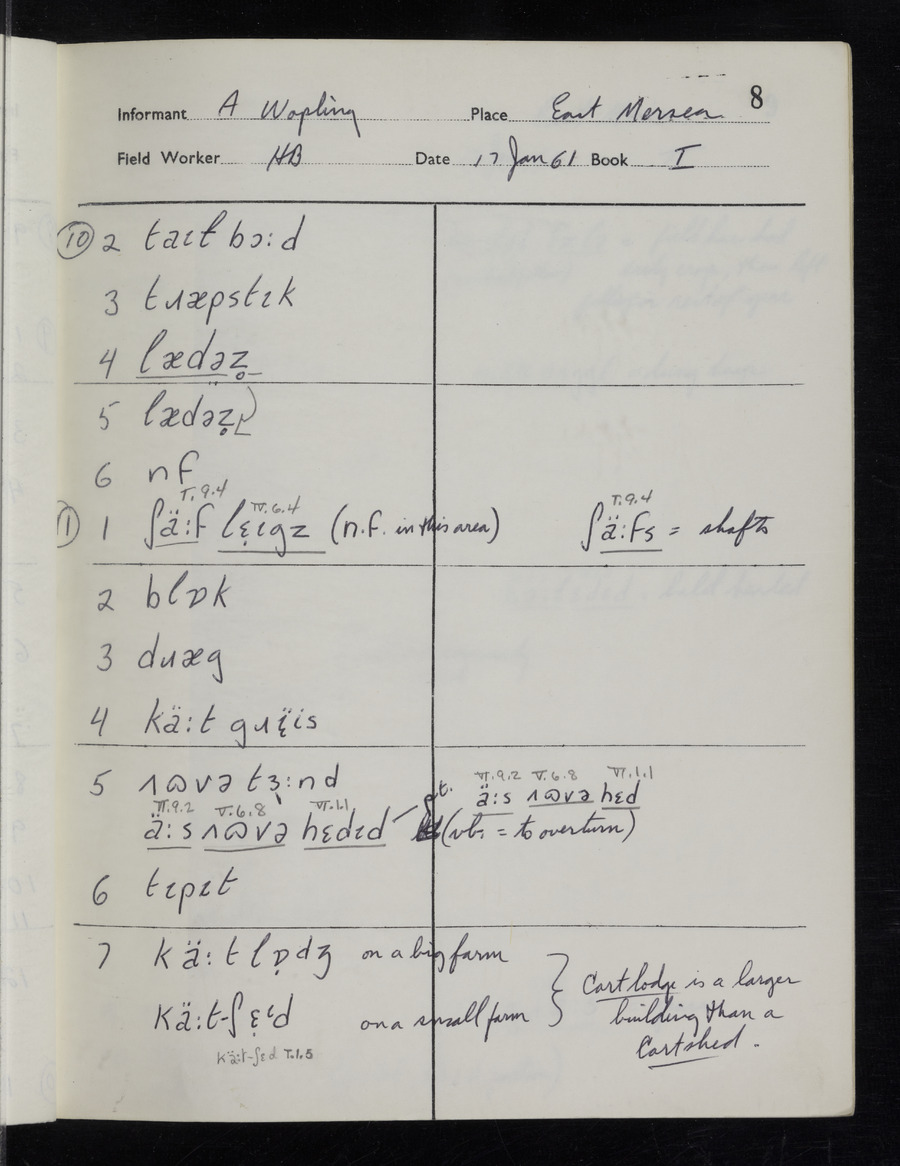 8
Informant A Wopling Place East Mersea
Field Worker HB Date 17 Jan 61 Book I
⑩ 2 taɪɫ bɔ:d
3 tɹæpstɪk
4 lædəz̥
5 lædəz̥
6 nf
V.9.4 IV.6.4 V.9.4
⑪ 1 ʃä:f lɛ̣ɪgz (n.f. in this area) ʃä:fs = shafts
2 blɒk
3 dɹæg
4 kä:t gɹɛ̈is
5 ʌʊvə tɜ:nd
VI.9.2 V.6.8 VI.1.1 VI.9.2 V.6.8 VI.1.1
ä:s ʌʊvə hɛdɪd pt. ä:s ʌʊvə hɛd
(vb. = to overturn)
6 tɪpɪt
7 kä:t lɒ̣dʒ on a big farm
kä:t-ʃɛ̣ɪd on a small farm
} Cartlodge is a larger
building than a
Cartshed.
kä:t-ʃɛd V.1.5